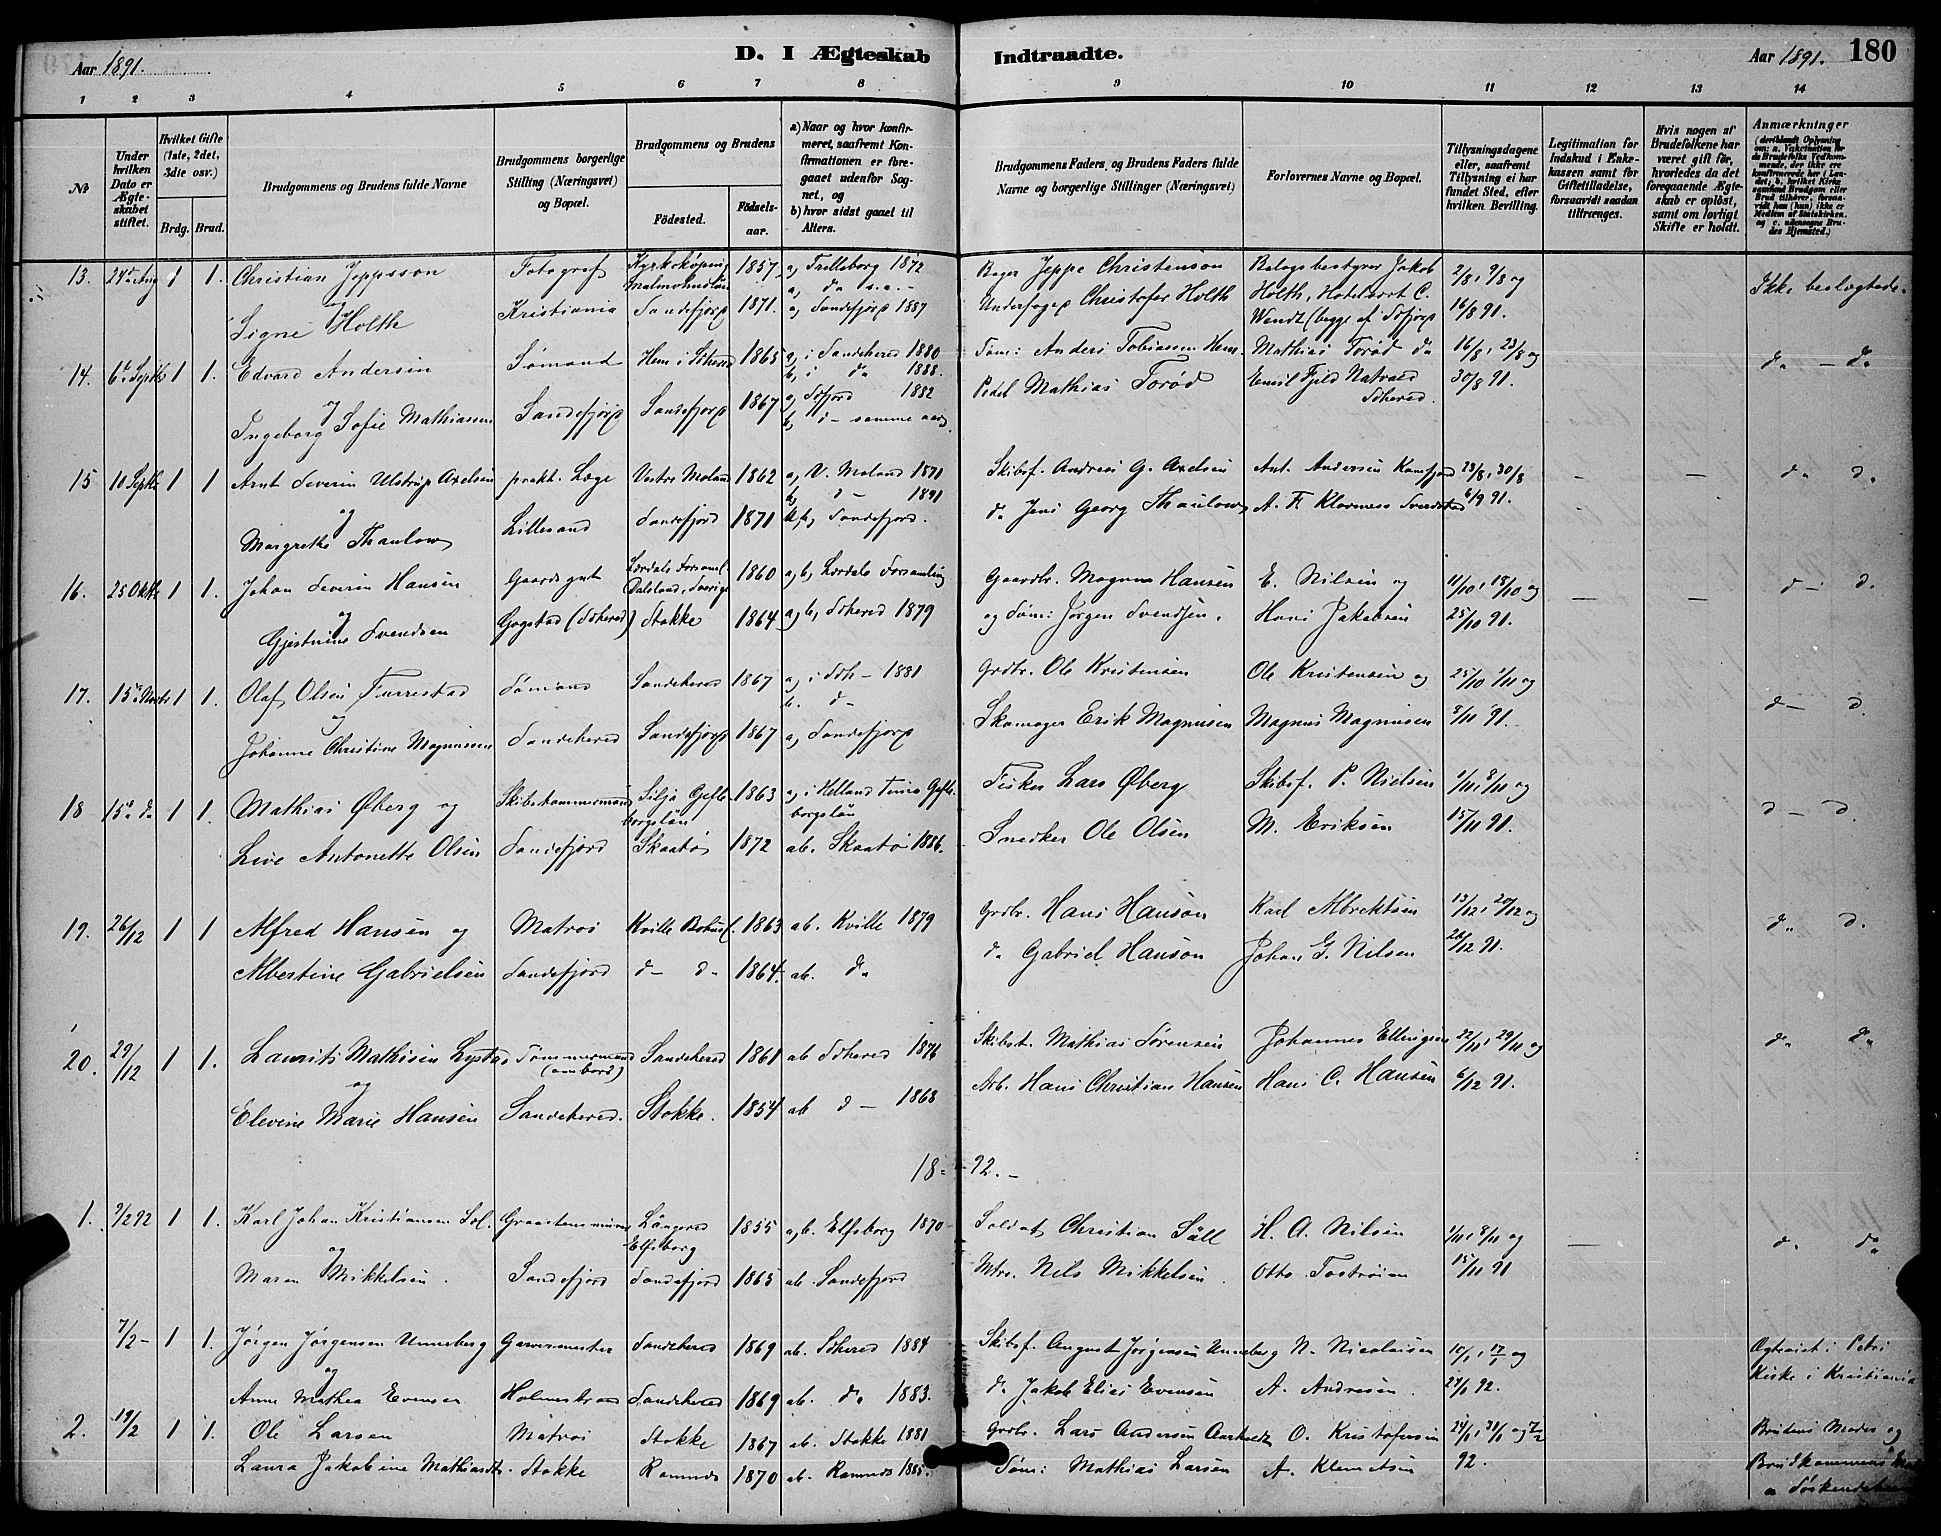 Aar 1891.
D. I Ægteskab Indtraadte.
Aar 1891. 180
1 2 3 4 5 6 7 8 9 10 11 12 13 14
No
Under hvilken Dato er Ægteskabet stiftet.
Hvilket Gifte (1ste, 2det, 3die osv.)
Brdg. Brud.
Brudgommens og Brudens fulde Navne
Brudgommens borgerlige Stilling (Næringsvei) og Bopæl.
Brudgommens og Brudens
Födested. Födselsaar.
a) Naar og hvor konfirmeret, saafremt Konfirmationen er foregaaet udenfor Sognet, og
b) hvor sidst gaaet til Alters.
Brudgommens Faders, og Brudens Faders fulde Navne og borgerlige Stillinger (Næringsvei)
Forlovernes Navne og Bopæl.
Tillysningsdagene eller, saafremt Tillysning ei har fundet Sted, efter hvilken Bevilling.
Legitimation for Indskud i Enkekassen samt for Giftetilladelse, forsaavidt saadan tiltrænges.
Hvis nogen af Brudefolkene har været gift før, hvorledes da det foregaaende Ægteskab er opløst, samt om lovligt Skifte er holdt.
Anmærkninger
(deriblandt Oplysning om: a. Vakcination for de Brudefolks Vedkommende, der ikke ere konfirmerede her i Landet, b. hvilket Kirkesamfund Brudgom eller Brud tilhører, forsaavidt han (hun) ikke er Medlem af Statskirken, og c. udensogns Brudes Hjemsted.)
13. 24de Aug 1 1. Christian Jeppsson Fotograf Kyrkoköping Malmöhuslän 1857 a) Trelleborg 1872 Bager Jeppe Christenson Bologsbestyrer Jakob 2/8, 9/8 og Ikke beslegtede.
og
Signe Holth Kristiania Sandefjord 1871. a) Sandefjord 1887 Undersøger Christofer Holth Holth, Hotelvert C. Wendt (begge af Sdfjord) 16/8 91.
14. 6te Septbr 1 1. Edvard Andersen Sømand Hem i Shered 1865 a) i Sandehered 1880 b) i do 1888. Søm: Anders Tobiassen Hem Mathias Torød do 16/8, 23/8 og do - do
og
Ingeborg Sofie Mathiassen Sandefjord Sandefjord 1867 a) Sdfjord 1882 b) d- samme aar. Pedel Mathias Torød Emil Fjeld Natvald Shered. 30/8 91.
15 10 Septbr 1 1 Arnt Severin Ulstrup Axelsen prakt. Læge Vestre Moland 1862 a) V. Moland 1871 b) d- 1891 Skibsf. Andreas G. Axelsen Ant. Andersen Kamfjord 23/8, 30/8 - - do do
og
Margrethe Thaulow Lillesand Sandefjord 1871 a) b) Sandefjord. do Jens Georg Thaulow A. F. Klaveness 6/9 91.
16. 25 Oktbr 1 1. Johan Severin Hansen Gaardsgut Lerdals Forsaml. Dalsland, Sverige 1860 a) b) Lerdals Forsamling Gaardbr. Magnus Hansen E. Nilsen og 11/10, 18/10 og - - d- do
og
Gjestrine Svendsen Gogstad (Sdhered) Stokke 1864 a) b) Sdhered 1879 og Søm: Jørgen Svendsen. Hans Jakobsen 25/10 91.
17. 15de Novbr 1 1. Olaf Olsen Furrestad Sømand Sandehered 1867 a) i Sdh- 1881 b. d- Grdbr. Ole Kristensen Ole Kristensen og 25/10 1/11 og d- d.
og
Johanne Christine Magnussen Sandehered Sandefjord 1867 a) Sandefjord Skomager Erik Magnusen Magnus Magnusen 8/11 91.
18 15de do 1 1. Mathias Øberg og Skibstømmermand Silja Gefleborgslän 1863 a) i Helland Tima Gefleborgslän Fisker Lars Øberg Skibsf. P. Nielsen 1/11, 8/11 og d- d.
Live Antonette Olsen Sandefjord Skaatø 1872 ab. Skaatø 1886. Snedker Ole Olsen M. Eriksen 15/11 91.
19. 26/12 1 1 Alfred Hansen og Matros Kville Bohusl. 1863 ab. Kville 1879 Grdbr. Hans Hanson Karl Albrektsen 13/12, 20/12 og do d.
Albertine Gabrielsen Sandefjord d- d- 1864. ab. do do Gabriel Hanson Johan G. Nilsen 26/12 91.
20. 29/12 1 1. Laurits Mathisen Lystad Tømmermand (ombord) Sandehered 1861 ab Sdhered 1876 Skibst. Mathias Sørensen Johannes Ellingsen 22/11, 29/11 og do do
og
Elevine Marie Hansen Sandehered. Stokke. 1854 ab d- 1868 Arb. Hans Christian Hansen Hans C. Hansen 6/12 91.
18-92.-
1. 7/2 92 1 1. Karl Johan Kristiansen Sel. Graastensminer Längered Elfsborg 1855 a) b. Elfsborg 1870 Soldat Christian Säll H. A. Nilsen 1/11, 8/11 og - do do
og
Maren Mikkelsen. Sandefjord Sandefjord 1865 ab. Sandefjord Mtrs. Nels Mikkelsen. Otto 15/11 91
7/2- 1 1. Jørgen Jørgensen Unneberg Garvermester Sandehered 1869 ab. Sdhered 1884 Skibsf. August Jørgensen Unneberg N. Nicolaisen 10/1, 17/1 og Ogtviet i Petri
og
Anne Mathea Evensen Holmestrand Sandehered 1869 ab. do 1883. do Jakob Elias Evensen A. Andresen. 24/1 92. Kirke i Kristiania
2. 19/2 1 1. Ole Larsen Matros Stokke 1867 ab. Stokke 1881 Grdbr. Lars Andersen Aarholdt O. Kristofersen 24/1, 31/1 og 7/2 Brudens Moder og
Laura Jakobine Mathiasdtr. Stokke Ramnes 1870 ab. Ramnes 1885. Søm: Mathias Larsen A. Klemetsen 92. Brudgommens
Søskendebørn